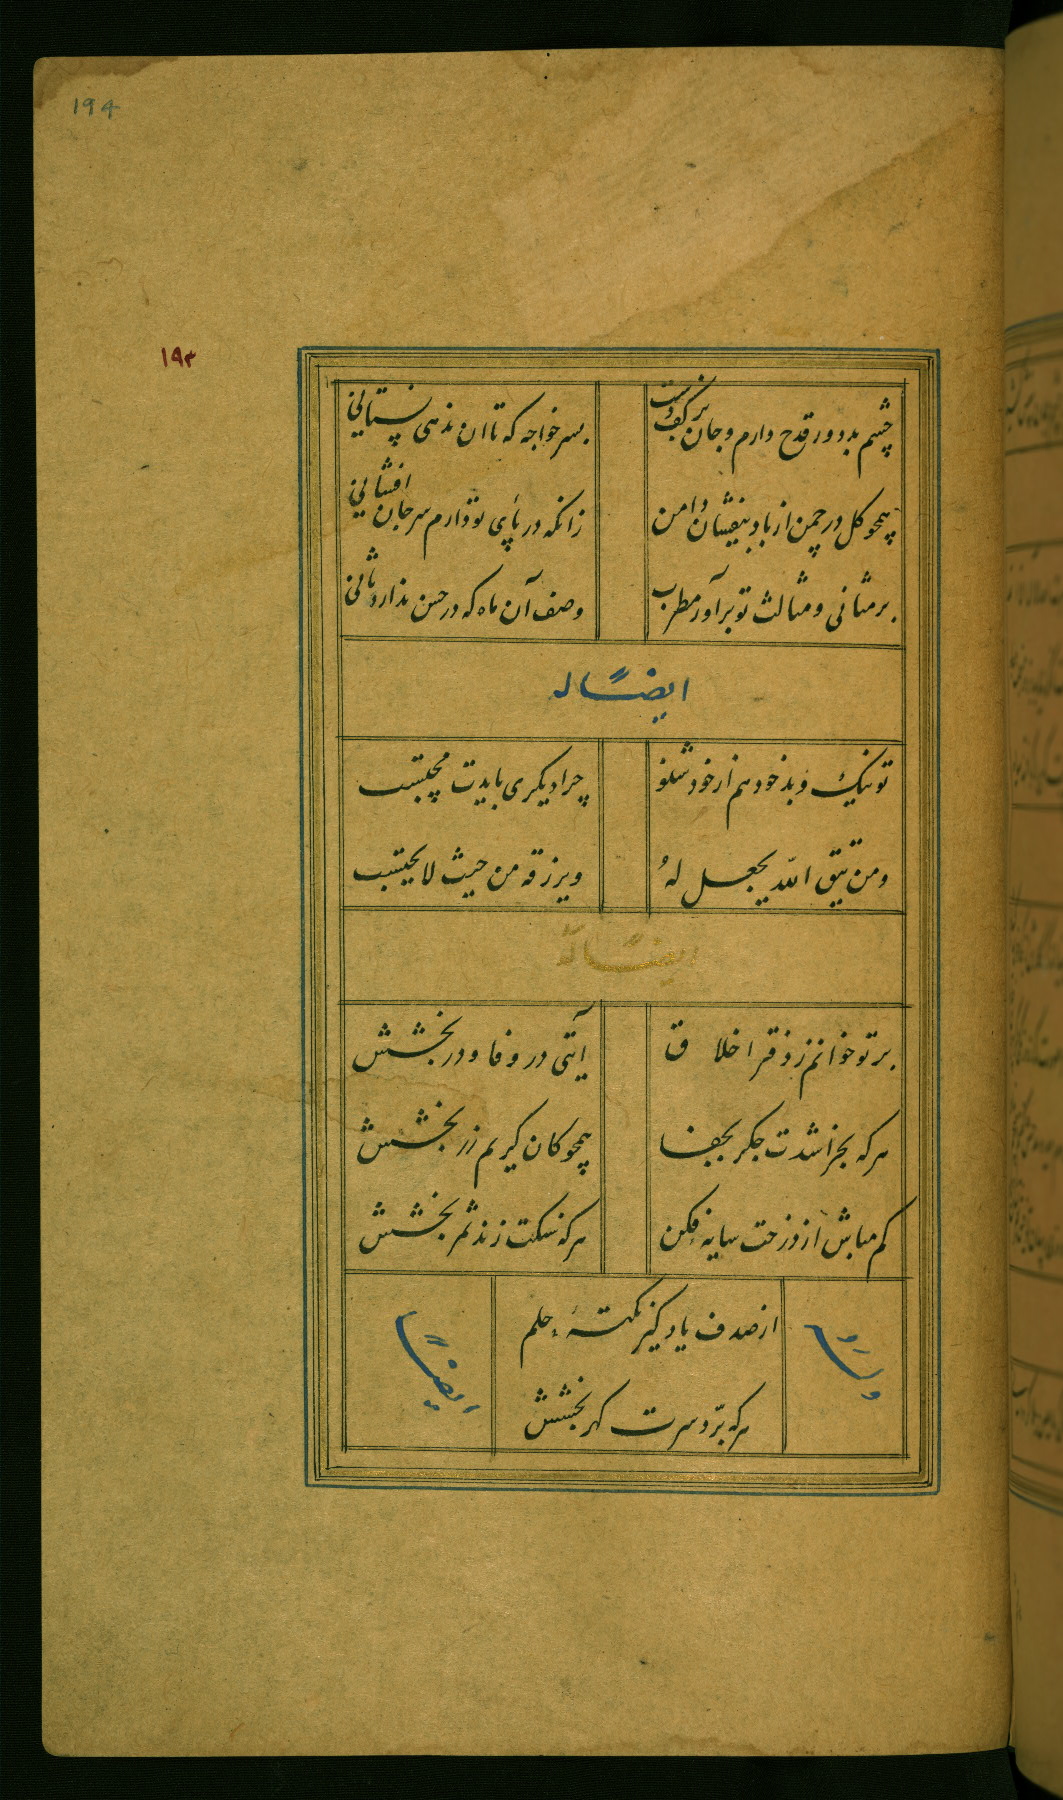 194
۱۹۳
چشم بد دور قدح دارم و جان بر کف دست
بسر خواجه که تا آن ندهی نستانی
همچو کل در چمن از باد بیفشان دامن
زانکه در پای تو دارم سر جان افشانی
بر مثانی و مثالث تو بر آور مطرب
وصف آن ماه که در حسن ندارد ثانی
ایضًا له
تو نیک و بد خود هم از خود
چرا دیکری بایدت محتسب
ومن یتق الله یجعل لهُ
ویرزقه من حیث لا یحتسب
ایضًا له
بر تو خوانم ز دفتر اخلاق
آیتی در وفا و در بخشش
هرکه بخراشدت جکر بجفا
همچو کان کریم زر بخشش
کم مباش از درخت سایه فکن
هرکه سنکت زند ثمر بخشش
وله
از صدف یاد کیر نکتهٔ حلم
هرکه برّد سرت کهر بخشش
ایضًا